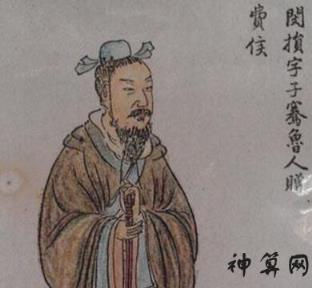 閔損字子騫魯人贈
費侯
神算网